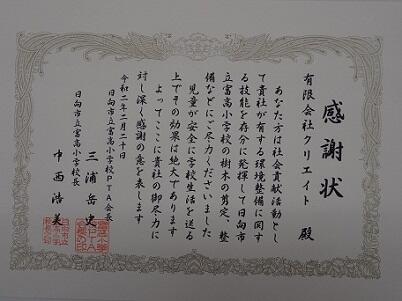 感謝状
有限会社クリエイト 殿
あなた方は社会貢献活動とし
て貴社が有する環境整備に関す
る技能を存分に発揮して日向市
立富高小学校の樹木の剪定、整
備などにご尽力くださいました
児童が安全に学校生活を送る
上でその効果は絶大であります
よってここに貴社の御尽力に
対し深く感謝の意を表します
令和二年二月二十日
日向市立富高小学校PTA会長
三浦岳史
日向市立富高小学校長
中西浩美